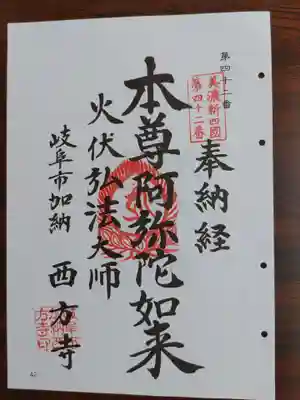 第四十二番
美濃新四國
第四十二番
奉納経
本尊阿弥陀如来
火伏弘法大師
岐阜市加納
西方寺